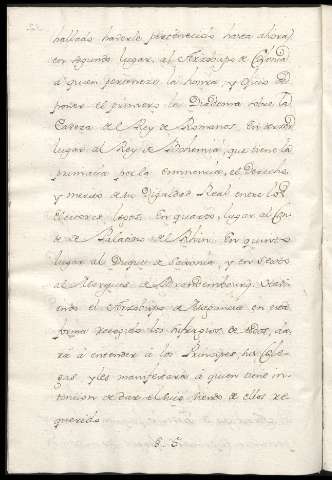 hallado haverle pertenecido hasta ahora
en segundo lugar, al Arzobispo de Colonia
a quien pertenece la honra, y oficio de
poner el primero la Diadema sobre la
Cabeza del Rey de Romanos. En tercer
lugar al Rey de Bohemia, que tiene la
primacia por la eminencia, el Derecho
y merito de su Dignidad Real entre los
Electores legos. En quarto lugar al Con-
de Palatino del Rhin. En quinto
lugar al Duque de Saxonia, y en sexto
al Marques de Brandembourg.
endo el Arzobispo de Maguncia en esta
forma recogido los sufragios de todos, da-
rá á entender á los Principes sus Cole-
gas y les manifestará á quien tiene in-
tencion de dar el suyo siendo de ellos re-
querido